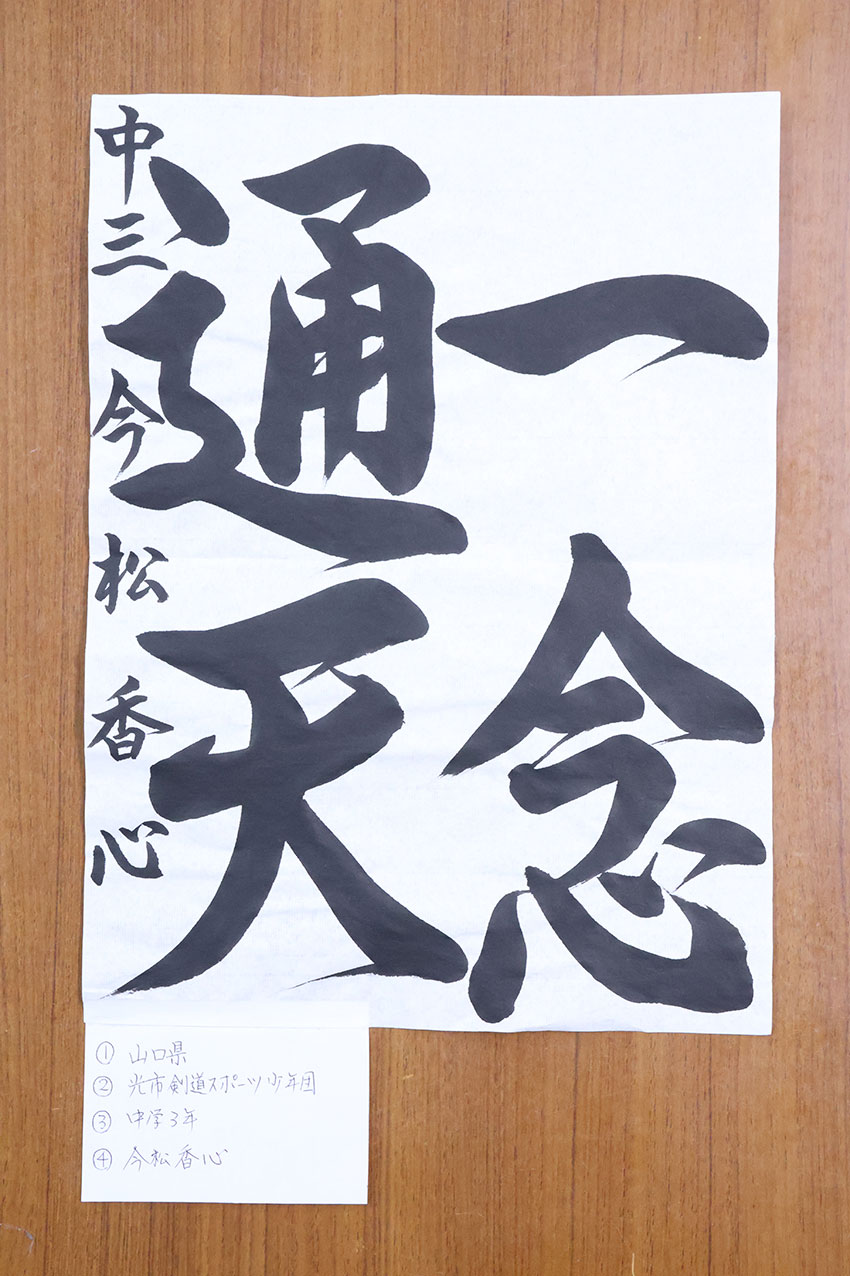 一念
通天
中三 今松香心
① 山口県
② 光市剣道スポーツ少年団
③ 中学3年
④ 今松香心